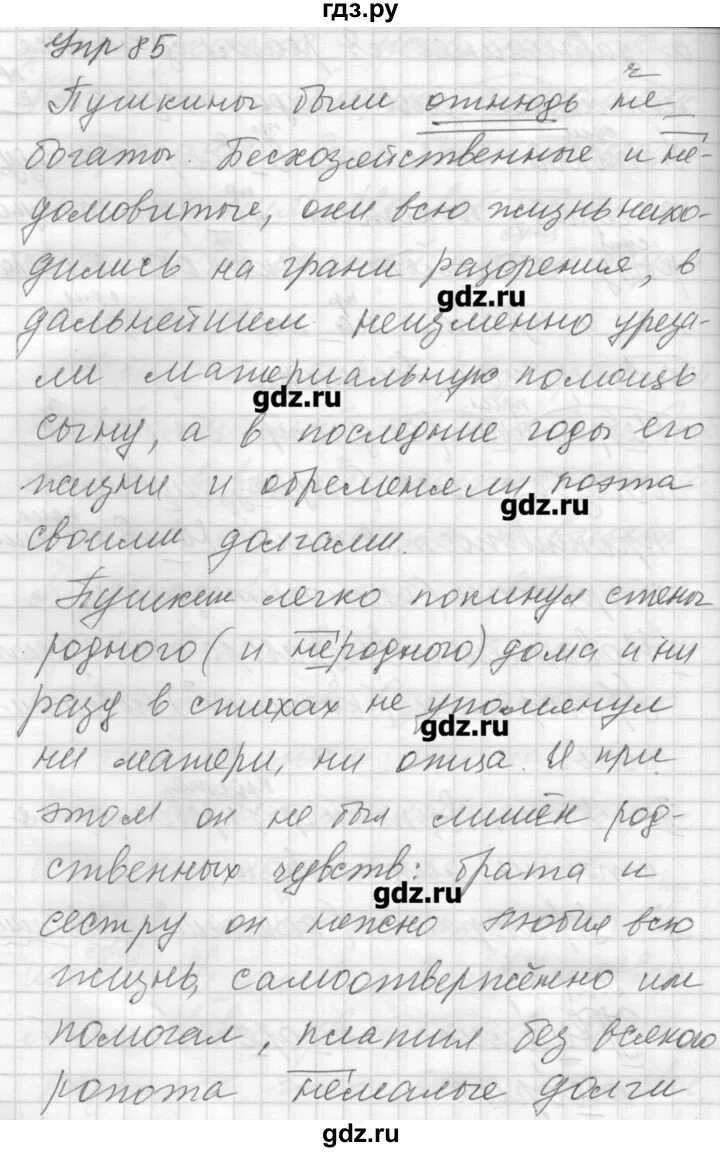 гдз.ру
Упр 85
Пушкины были отнюдь не
богаты. Бесхозяйственные и не-
домовитые, они всю жизнь нахо-
дились на грани разорения, в
gdz.ru
дальнейшем неизменно уреза-
ли материальную помощь
gdz.ru
сыну, а в последние годы его
жизни и обременяли поэта
gdz.ru
своими долгами.
Пушкин легко покинул стены
родного (и неродного) дома и ни
разу в стихах не упомянул
gdz.ru
ни матери, ни отца. И при
этом он не был лишён род-
ственных чувств: брата и
gdz.ru
сестру он нежно любил всю
жизнь, самоотверженно им
помогал, платил без всякого
ропота немалые долги
gdz.ru